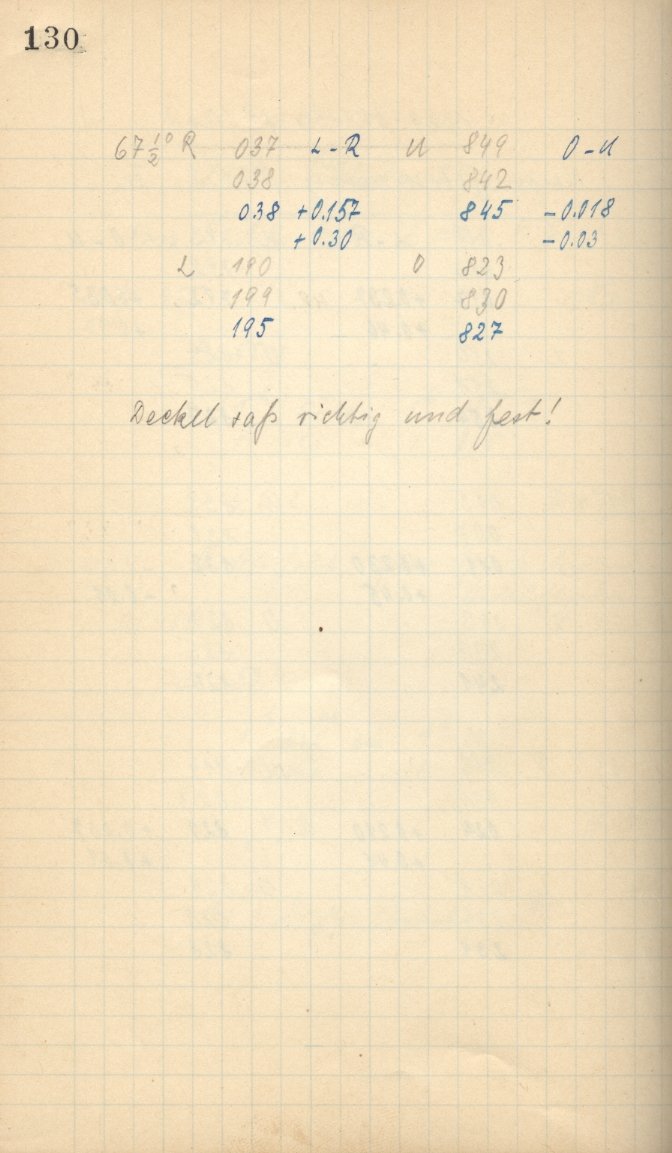 130
67 1/2° R 037 L-R U 849 O-U
038 842
038 +0.157 845 -0.018
+0.30 -0.03
L 190 O 823
199 830
195 827
Deckel saß richtig und fest!